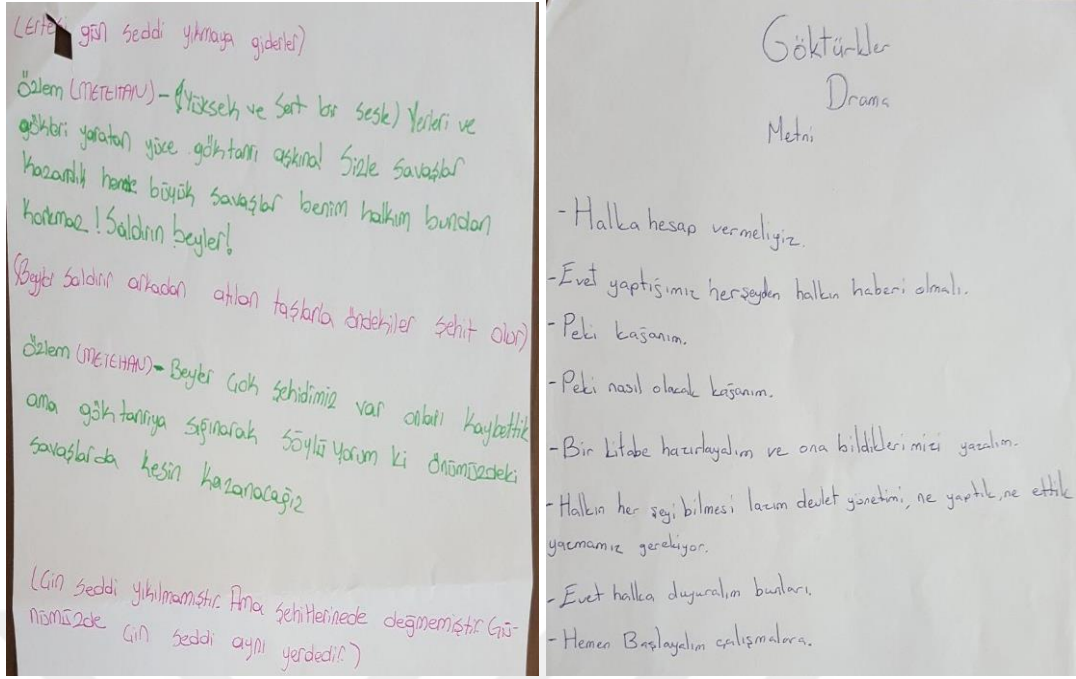 (Ertesi gün seddi yıkmaya giderler)
Özlem (METEHAN) - (Yüksek ve sert bir sesle) Yerleri ve
gökleri yaratan yüce göktanrı aşkına! Sizle savaşlar
kazandık hemde büyük savaşlar benim halkım bundan
korkmaz! Saldırın beyler!
(Beyler saldırır arkadan atılan taşlarla öndekiler şehit olur)
Özlem (METEHAN) - Beyler çok şehidimiz var onları kaybettik
ama göktanrıya sığınarak söylüyorum ki önümüzdeki
savaşlarda kesin kazanacağız
(Çin seddi yıkılmamıştır. Ama şehitlerinede değmemiştir. Gü-
nümüzde Çin seddi aynı yerdedir.)
Göktürkler
Drama
Metni
- Halka hesap vermeliyiz.
- Evet yaptığımız herşeyden halkın haberi olmalı.
- Peki kağanım.
- Peki nasıl olacak kağanım.
- Bir kitabe hazırlayalım ve ona bildiklerimizi yazalım.
- Halkın her şeyi bilmesi lazım devlet yönetimi, ne yaptık, ne ettik
yazmamız gerekiyor.
- Evet halka duyuralım bunları.
- Hemen Başlayalım çalışmalara.